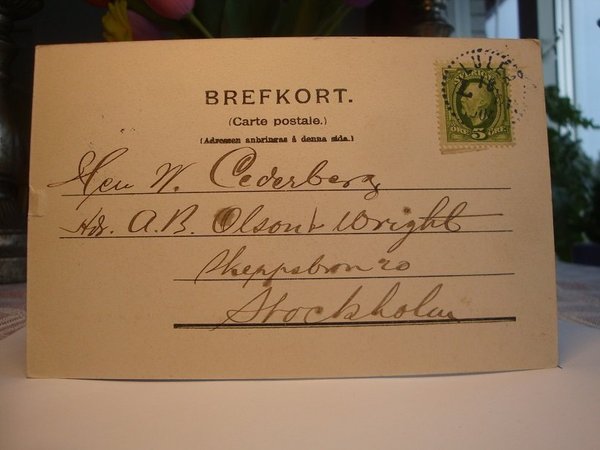 BREFKORT.
(Carte postale.)
(Adressen anbringas å denna sida.)
LULEÅ
5
ÖRE
Herr W. Cederberg
Adr. A.B. Olson & Wright
Skeppsbron 20
Stockholm